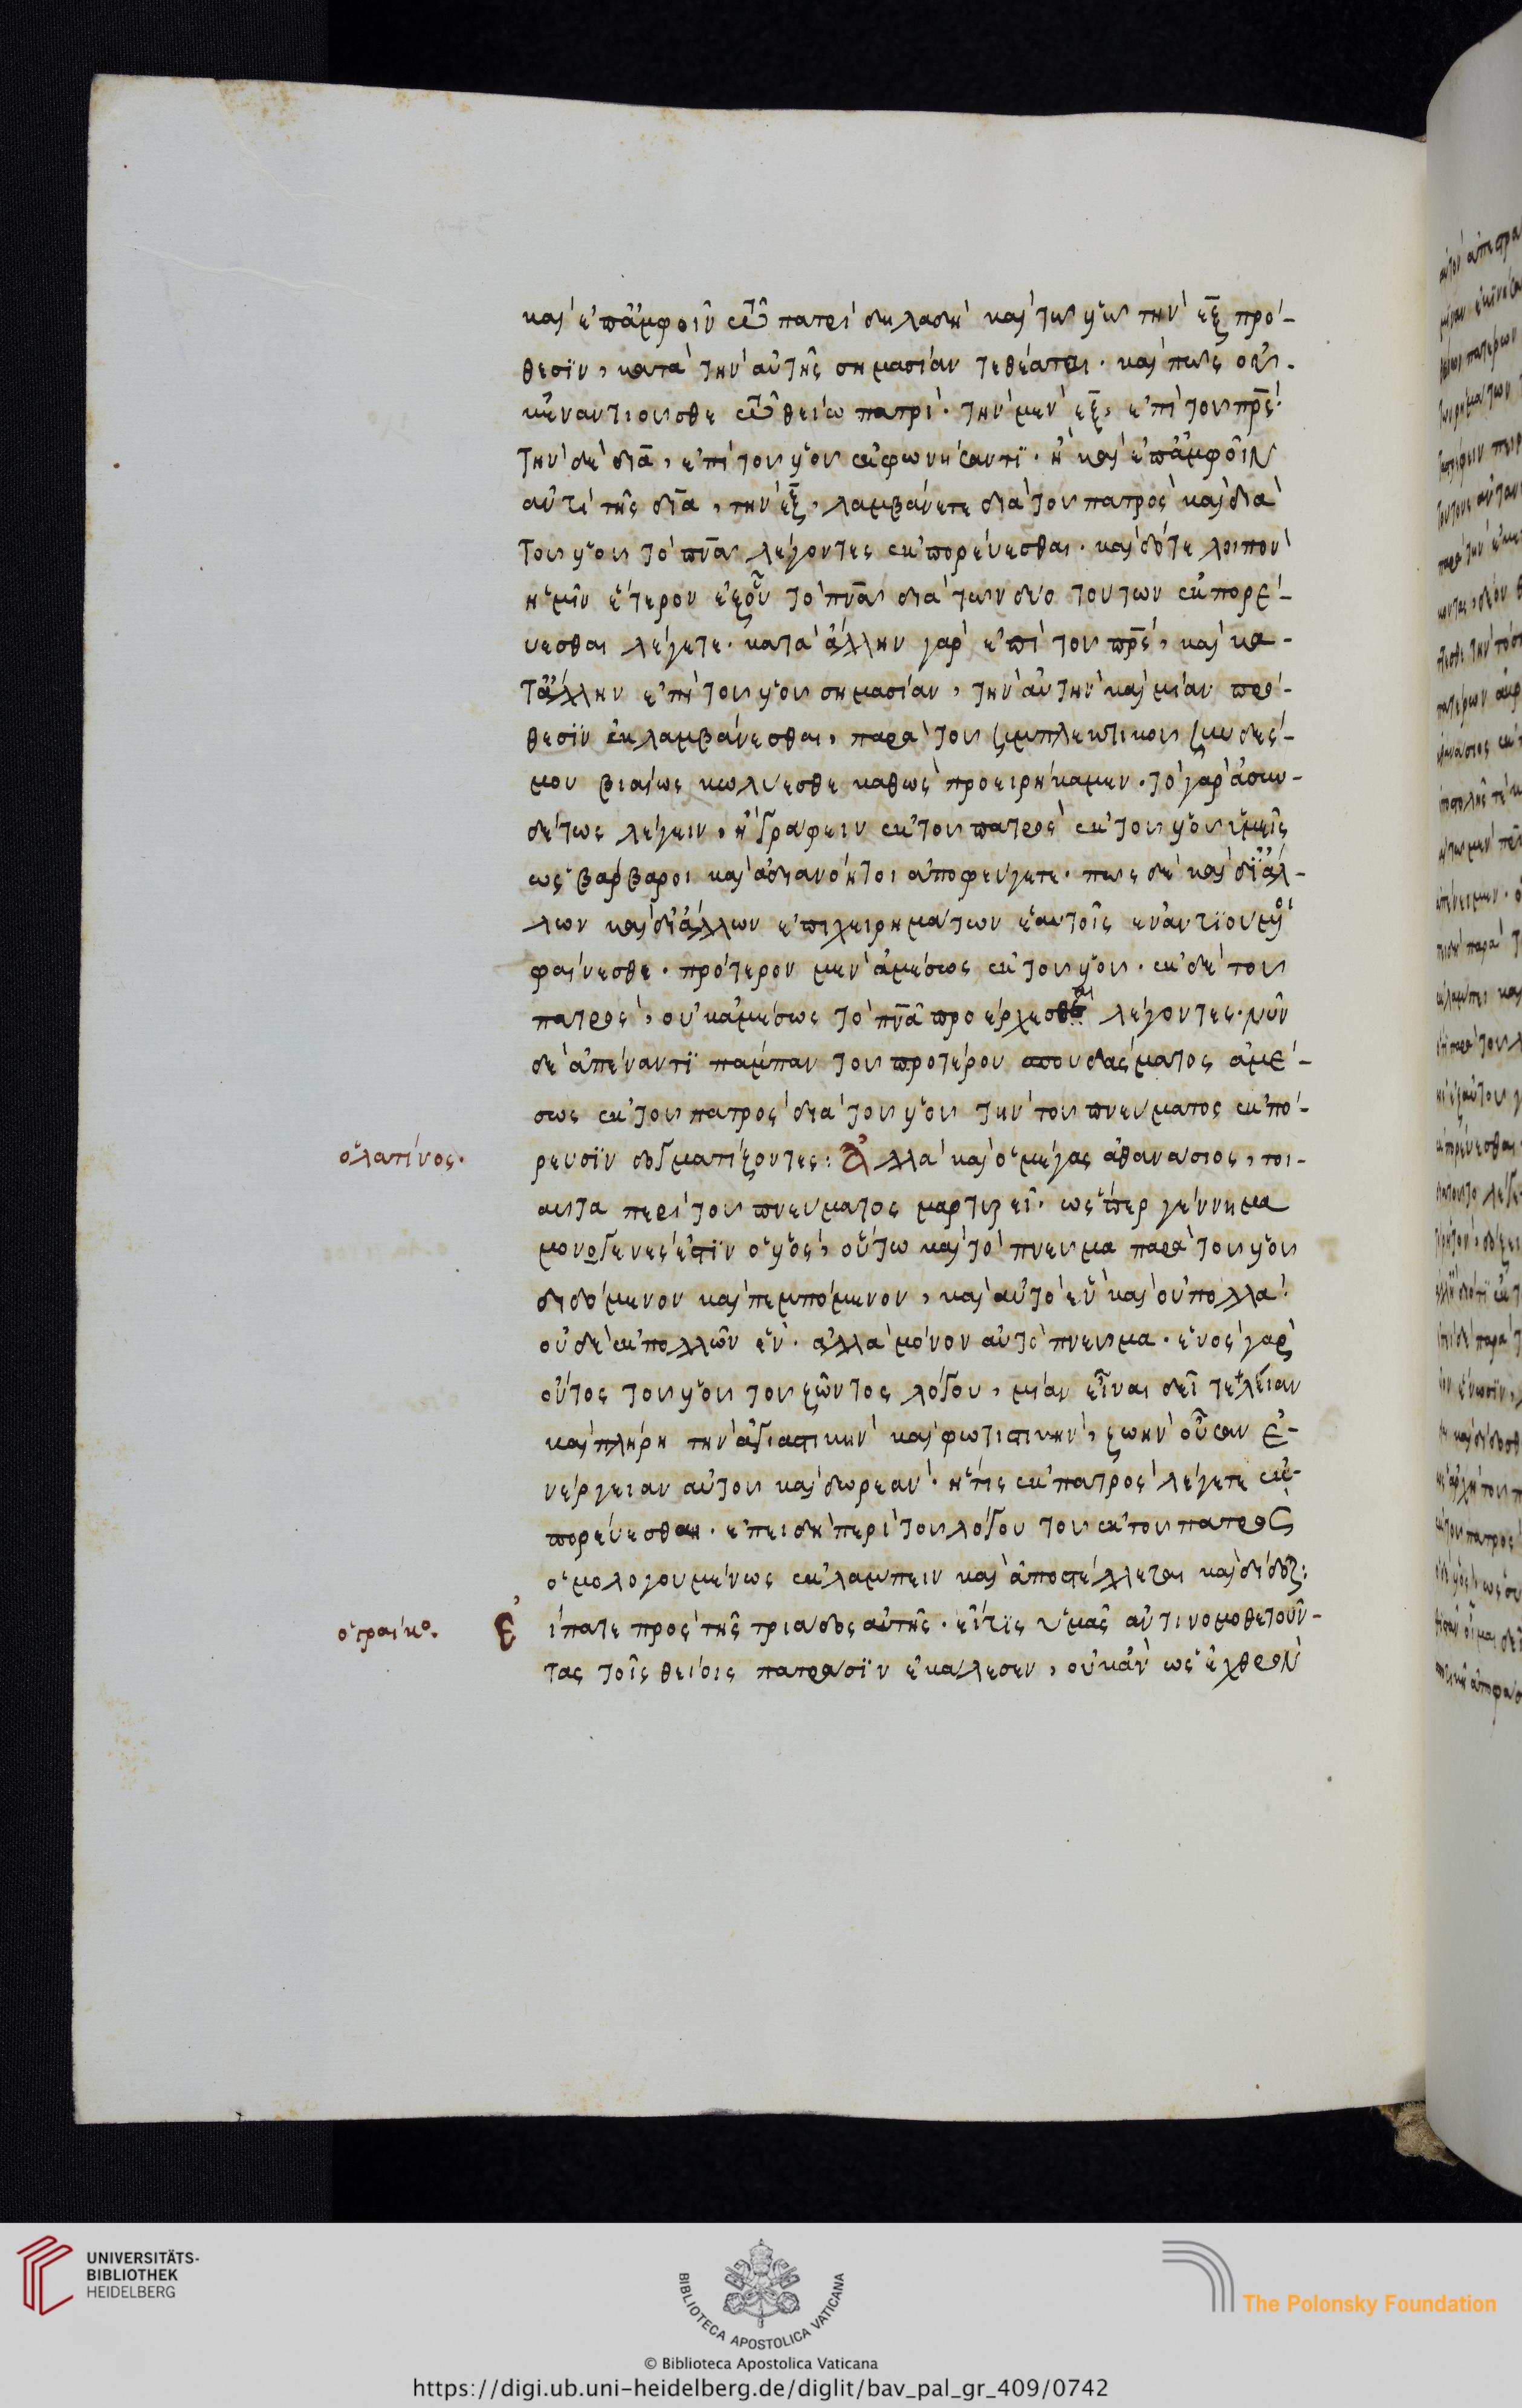 καὶ ἐπἄμφοιν τῶ πατρὶ δηλαδὴ καὶ τῶ υἱῶ τὴν ἐξ πρό-
θεσϊν, κατὰ τὴν αὐτῆς σημασίαν τεθέαται. καὶ πῶς οὐ-
κἐναντιοῦσθε τῶ θείω πατρὶ. τὴν μὲν ἐξ, ἐπὶ τοῦ πρς.
τὴν δὲ διὰ, ἐπὶ τοῦ υἱοῦ ἐκφωνήσαντϊ. ἢ καὶ ἐπἄμφοῖν
αὐτὶ τῆς διὰ, τὴν ἐξ, λαμβάνετε διὰ τοῦ πατρὸς καὶ διὰ
τοῦ υἱοῦ τὸ πνα λέγοντες ἐκπορεύεσθαι. καὶ δότε λοιπὸν
ἡμῖν ἕτερον ἐξοὗ τὸ πνα διὰ τῶν δύο τούτων ἐκπορεύ-
υεσθαι λέγετε. κατὰ ἄλλην γὰρ ἐπὶ τοῦ πρς, καὶ κα-
τἄλλην ἐπὶ τοῦ υἱοῦ σημασίαν, τὴν αὐτὴν καὶ μίαν πρό-
θεσϊν ἐκλαμβάνεσθαι, παρὰ τοῦ συμπλεκτικοῦ συνδές-
μου βιαίως κωλύεσθε καθὼς προειρήκαμεν. τὸ γὰρ ἀσυν-
δέτως λέγειν, ἢ γράφειν ἐκ τοῦ πατρὸς ἐκ τοῦ υἱοῦ ὑμεῖς
ὡς βάρβαροι καὶ ἀδιανόητοι ἀποφεύγετε. πῶς δὲ καὶ δϊἄλ-
λων καὶ δἰἄλλων ἐπιχειρημάτων ἑαυτοῖς ἐναντϊούμενοι
φαίνεσθε. πρότερον μὲν ἀμέσως ἐκ τοῦ υἱοῦ. ἐκ δὲ τοῦ
πατρὸς, οὐκἀμέσως τὸ πνα προέρχεσθαι λέγοντες. νῦν
δὲ ἀπέναντϊ πάμπαν τοῦ προτέρου σπουδάσματος ἀμέ-
σως ἐκ τοῦ πατρὸς διὰ τοῦ υἱοῦ τὴν τοῦ πνεύματος ἐκπό-
ὁ λατίνος. ρευσϊν δογματίζοντες: Ἀλλὰ καὶ ὁ μέγας ἀθανάσιος, τοι-
αῦτα περὶ τοῦ πνεύματος μαρτυρεῖ. ὥς περ γέννημα
μονογενές ἐστϊν ὁ υἱὸς, οὕτω καὶ τὸ πνεῦμα παρὰ τοῦ υἱοῦ
διδόμενον καὶ πεμπόμενον, καὶ αὐτὸ ἓν καὶ οὐ πολλὰ.
οὐδὲ ἐκ πολλῶν ἓν. ἀλλὰ μόνον αὐτὸ πνεῦμα. ἑνὸς γὰρ
οὗτος τοῦ υἱοῦ τοῦ ζῶντος λόγου, μίαν εἶναι δεῖ τελείαν
καὶ πλήρη τὴν ἁγιαστικὴν καὶ φωτιστικὴν, ζωὴν οὖσαν ἐ-
νέργειαν αὐτοῦ καὶ δωρεὰν. ἥτις ἐκ πατρὸς λέγετε ἐκ-
πορεύεσθαι. ἐπειδὴ περὶ τοῦ λόγου τοῦ ἐκ τοῦ πατρὸς
ὁμολογουμένως ἐκλάμπειν καὶ ἀποστέλλεται καὶ δέδοται:
ὁ γραίκο. Ἐίπατε πρὸς τῆς τριάδος αὐτῆς. εἴ τϊς ὑμᾶς ἀντινομοθετοῦν-
τας τοῖς θείοις πατράσϊν ἐκάλεσεν, οὐκἂν ὡς ἐχθρὸν
UNIVERSITÄTS-
BIBLIOTHEK
HEIDELBERG
BIBLIOTECA APOSTOLICA VATICANA
The Polonsky Foundation
© Biblioteca Apostolica Vaticana
https://digi.ub.uni-heidelberg.de/diglit/bav_pal_gr_409/0742